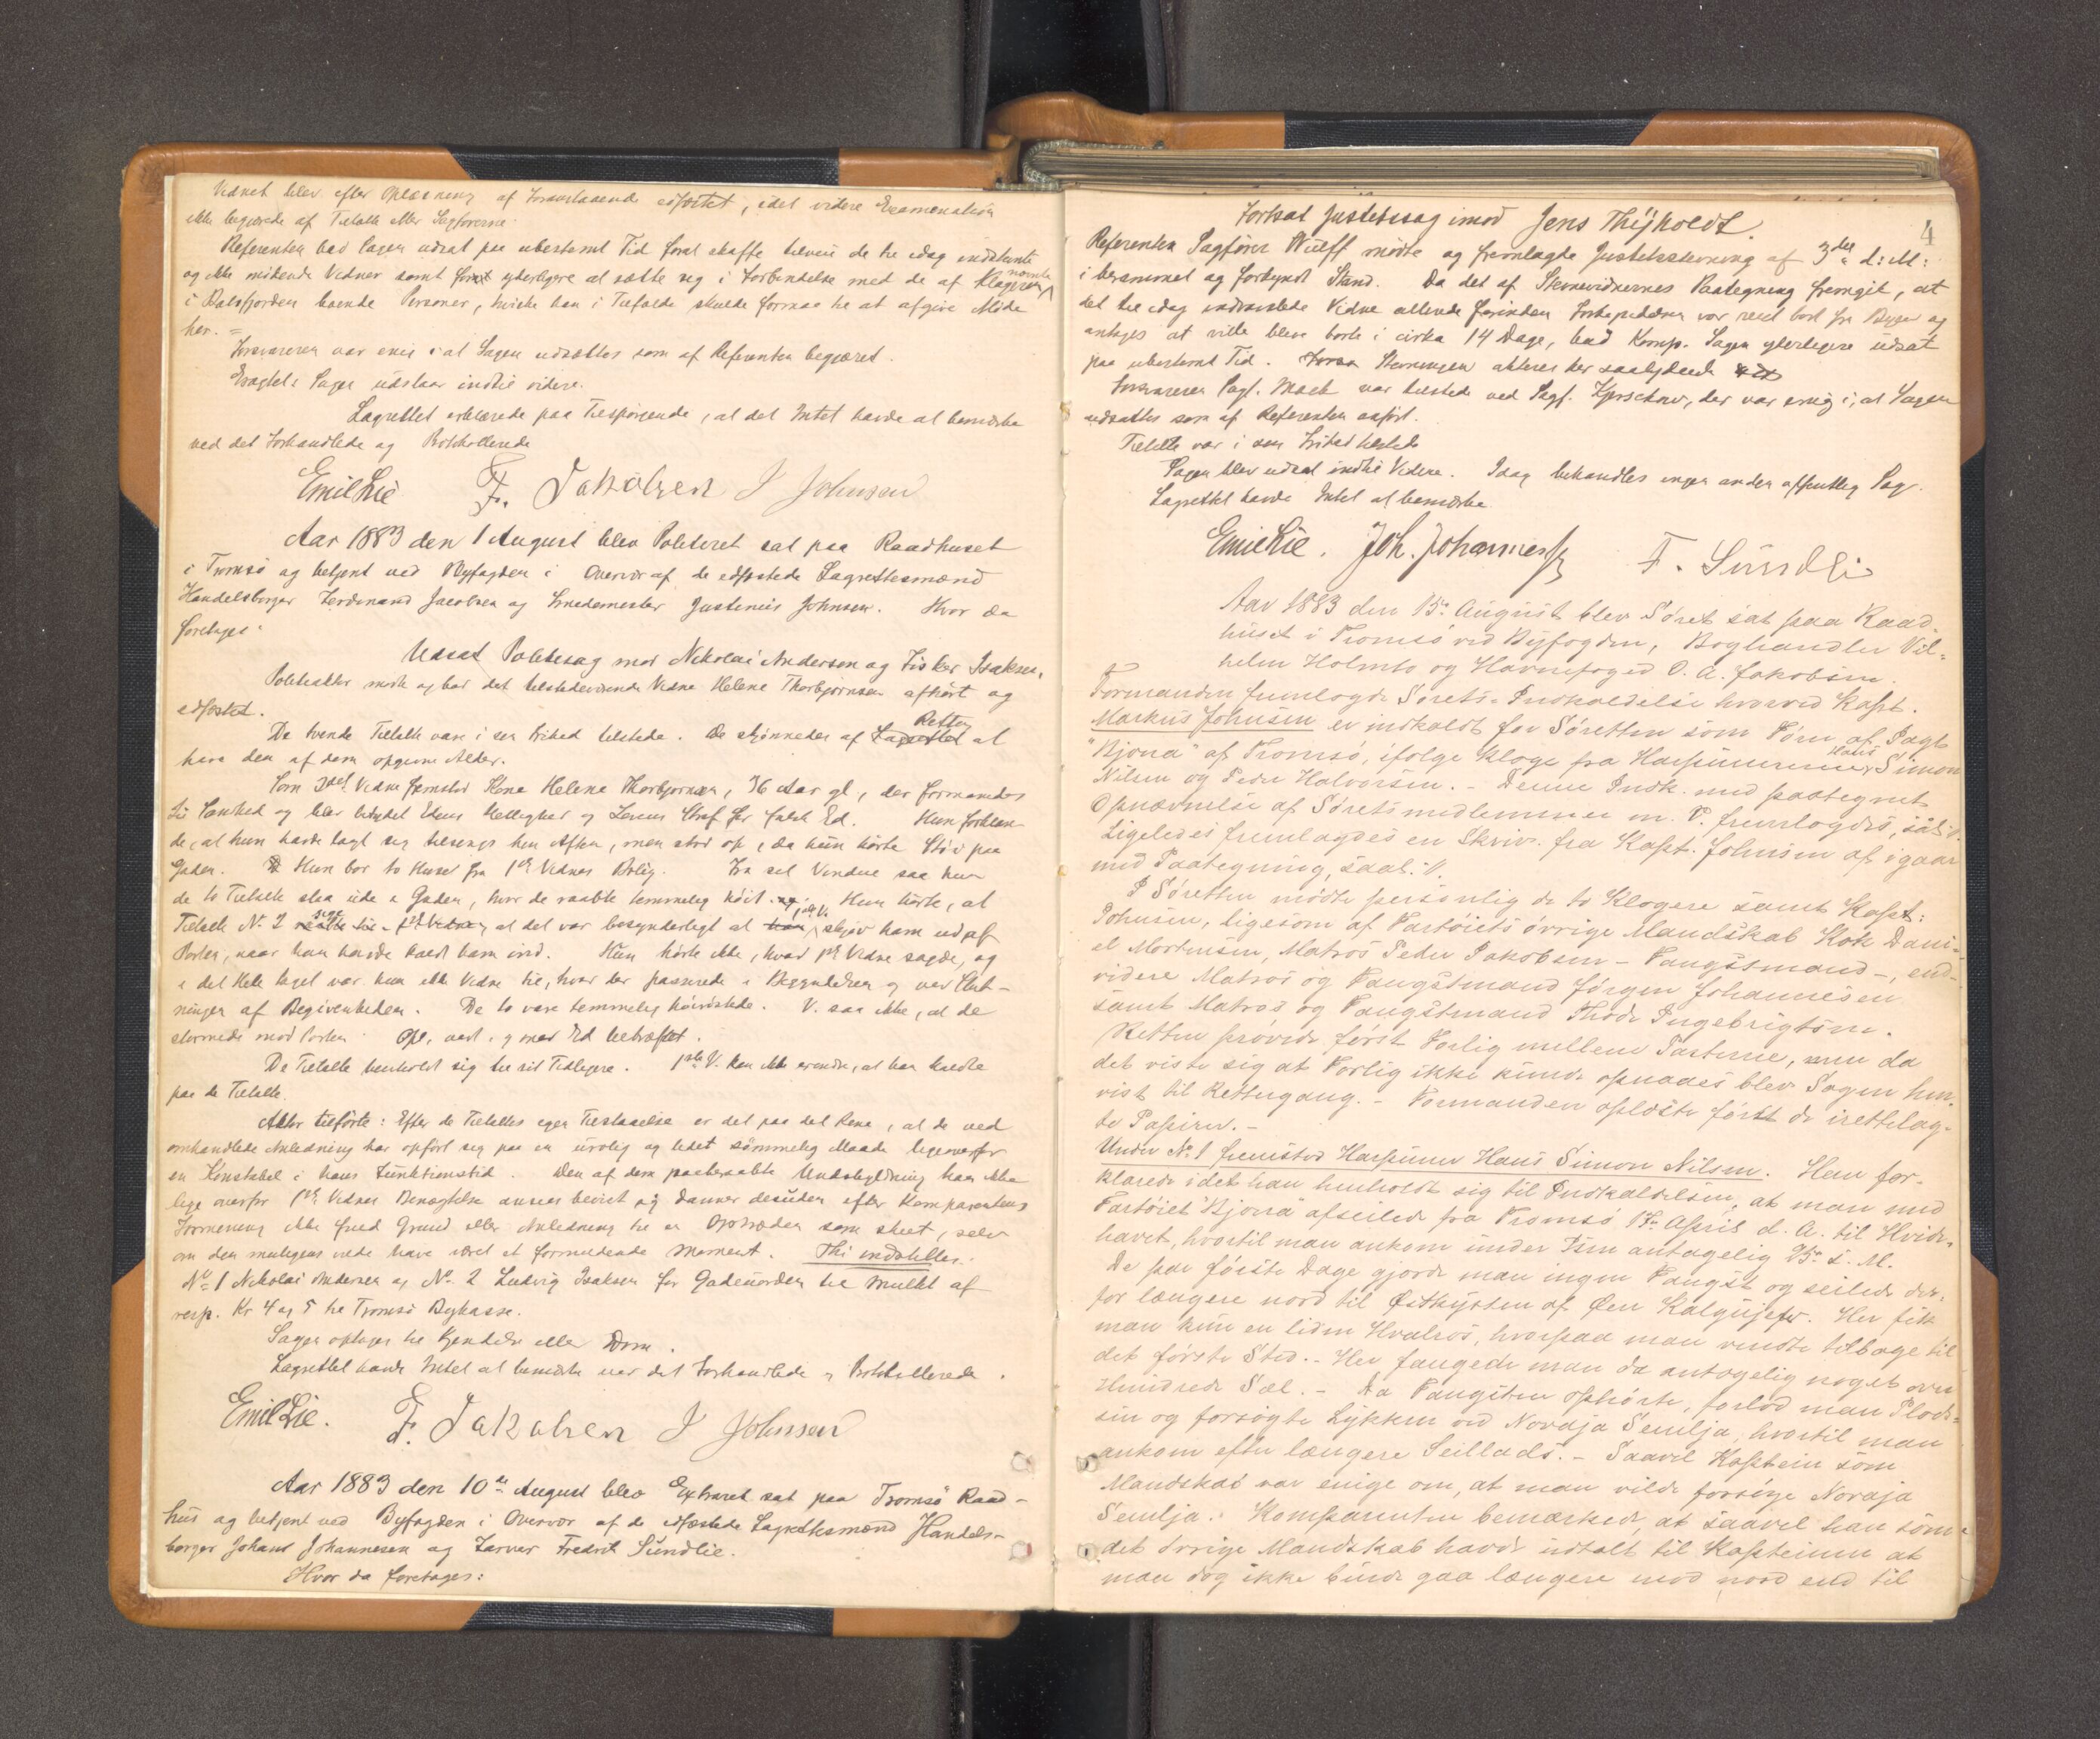 Vidnet blev efter Oplæsning af Foranstaaende edfæstet, idet videre Examination
ikke begjærede af Tiltalte eller Sagførerne.
Referenten bad Sagen udsat paa ubestemt Tid foråt skaffe tilveie de tre idag indstevnte
og ikke mødende Vidner samt foråt yderligere at sætte sig i Forbindelse med de af Klageren nævnte
i Balsfjorden boende Personer, hvilke han i Tilfælde skulde formaa til at afgive Møde
her. =
Forsvareren var enig i at Sagen udsættes som af Referenten begjæret.
Eragtet: Sagen udstaar indtil videre.
Lagrettet erklærede paa Tilspørgende, at det Intet havde at bemærke
ved det Forhandlede og Protokollerede
Emil Lie F. Jakobsen J Johnsen
Aar 1883 den 1 August blev Politiret sat paa Raadhuset
i Tromsø og betjent ved Byfogden i Overvær af de edfæstede Lagrettesmænd
Handelsborger Ferdinand Jacobsen og Smedemester Justinus Johnsen. Hvor da
foretages:
Udsat Politisag mod Nikolai Andersen og Fisker Isaksen.
Politiaktor mødte og bad det tilstedeværende Vidne Helene Thorbjørnsen afhørt og
edfæstet.
De tvende Tiltalte vare i sin Frihed tilstede. De skjønnedes af Lagrettet Retten at
have den af dem opgivne Alder.
Som 3det Vidne fremstod Kone Helene Thorbjørnsen, 36 Aar gl, der formanedes
til Sandhed og blev betydet Edens Hellighed og Lovens Straf for falsk Ed. Hun forklare-
de, at hun havde lagt sig tilsengs hin Aften, men stod op, da hun hørte Støi paa
Gaden. Hun bor to Huse fra 1ste Vidnes Bolig. Fra sit Vindue saa hun
de to Tiltalte staa ude i Gaden, hvor de raabte temmelig høit. Hun hørte, at
Tiltalte No 2 sige at det var besynderligt at skjøv ham ud af
Porten, naar han havde kaldt ham ind. Hun hørte ikke, hvad 1ste Vidne sagde, og
i det Hele taget var hun ikke Vidne til, hvad der passerede i Begyndelsen og ved Slut-
ningen af Begivenheden. De to vare temmelig høirøstede. V. saa ikke, at de
stormede mod Porten. Opl., vedt. og med Ed bekræftet.
De Tiltalte henholdt sig til sit Tidligere. 1ste V. kan ikke erindre, at han kaldte
paa de Tiltalte.
Aktor tilførte: Efter de Tiltaltes egen Tilstaaelse er det paa det Rene, at de ved
omhandlede Anledning har opført sig paa en urolig og lidet sømmelig Maade ligeoverfor
en Konstabel i hans Funktionstid. Den af dem paaberaabte Undskyldning kan ikke
lige overfor 1ste Vidnes Benægtelse ansees bevist og danner desuden efter Komparentens
Formening ikke fuld Grund eller Anledning til en Optræden som skeet, selv
om den muligens vilde have været et formildende Moment. Thi indstilles:
No 1 Nikolai Andersen og No 2 Ludvig Isaksen for Gadeuorden til Mulkt af
resp. Kr 4 og 5 til Tromsø Bykasse.
Sagen optages til Kjendelse eller Dom.
Lagrettet havde Intet at bemærke ved det Forhandlede og Protokollerede.
Emil Lie. F. Jakobsen J Johnsen
Aar 1883 den 10de August blev Extraret sat paa Tromsø Raad-
hus og betjent ved Byfogden i Overvær af de edfæstede Lagrettesmænd Handels-
borger Johans Johannesen og Farver Fredrik Sundlie.
Hvor da foretages:
4
Fortsat Justitssag imod Jens Thijholdt.
Referenten Sagfører Wulff mødte og fremlagde Justitsstevning af 3die d: M:
i beramet og forkyndt Stand. Da det af Stevnevidnernes Paategning fremgik, at
det til idag indstevnte Vidne allerede førinden Forkyndelsen var reist bort fra Byen og
antages at ville blive borte i cirka 14 Dage, bad Komp. Sagen yderligere udsat
paa ubestemt Tid. Stevningen akteres her saalydende
Forsvareren Sagf. Mack var tilstede ved Sagf. Kjerschow, der var enig i, at Sagen
udsattes som af Referenten anført.
Tiltalte var i sin Frihed tilstede
Sagen blev udsat indtil Videre. Idag behandles ingen anden offentlig Sag.
Lagrettet havde Intet at bemærke
Emil Lie. Joh. Johannesen F. Sundlie
Aar 1883 den 15de August blev Søret sat paa Raad-
huset i Tromsø ved Byfogden, Boghandler Vil-
helm Holmbo og Havnefoged O. A. Jakobsen.
Formanden fremlagde Sørets-Indkaldelse hvorved Kapt.
Markus Johnsen er indkaldt for Søretten som Fører af Jagt
"Bjona" af Tromsø, ifølge Klage fra Harpunererne Hans Simon
Nilsen og Peder Halvorsen. - Denne Indk. med paategnet
Opnævnelse af Søretsmedlemmer m. V. fremlagdes, saal:
Ligeledes fremlagdes en Skriv. fra Kapt. Johnsen af igaar
med Paategning, saal: //.
I Søretten mødte personlig de to Klagere samt Kapt:
Johnsen, ligesom af Fartøiets øvrige Mandskab Kok Dani-
el Mortensen, Matros Peder Jakobsen - Fangstmand -, end-
videre Matros og Fangstmand Jørgen Johannesen
samt Matros og Fangstmand Thode Ingebrigtsen.
Retten prøvede først Forlig mellem Parterne, men da
det viste sig at Forlig ikke kunde opnaaes blev Sagen hen-
vist til Rettergang. - Formanden oplæste først de irettelag-
te Papirer. -
Under No 1 fremstod Harpuner Hans Simon Nilsen. Han for-
klarede idet han henholdt sig til Indkaldelsen, at man med
Fartøiet "Bjona" afseilede fra Tromsø 17de April d. A. til Hvide-
havet, hvortil man ankom under Isen antagelig 25de s. M.
De par første Dage gjorde man ingen Fangst og seilede der-
for længere nord til Østkysten af Øen Kalgujew. Her fik
man kun en liden Hvalros, hvorpaa man vendte tilbage til
det første Sted. - Her fangede man da antagelig noget over
Hundrede Sæl. - Da Fangsten ophørte, forlod man Plads-
sen og forsøgte Lykken ved Novaja Semlja, hvortil man
ankom efter længere Seillads. - Saavel Kaptein som
Mandskab var enige om, at man vilde forsøge Novaja
Semlja. Komparenten bemærkede, at saavel han som
det øvrige Mandskab havde udtalt til Kapteinen at
man dog ikke burde gaa længere mod nord end til